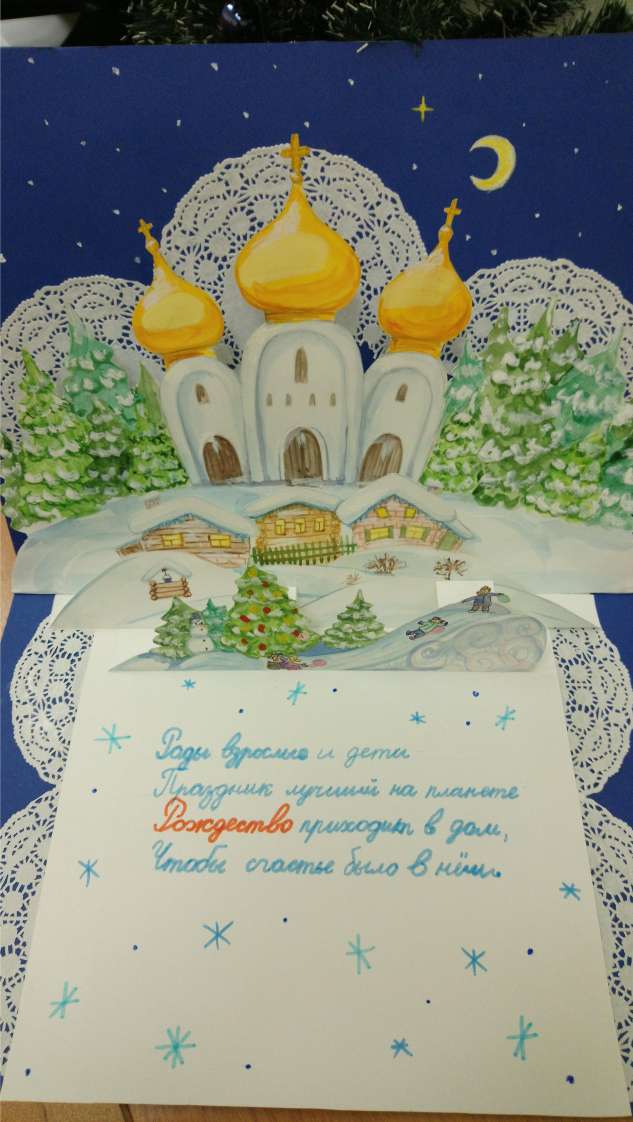 Рады взрослые и дети
Праздник лучший на планете
Рождество приходит в дом,
Чтобы счастье было в нём.